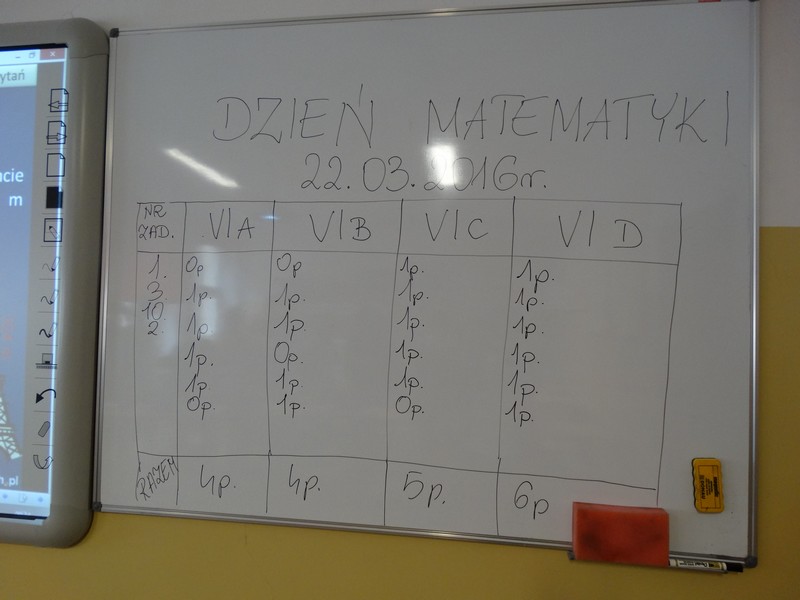 ytań
cie
m
n.pl
DZIEŃ MATEMATYKI
22.03.2016r.
NR ZAD. VIA VIB VIC VI D
1. 0p 0p 1p. 1p.
3 1p. 1p. 1p. 1p.
10 1p. 1p. 1p. 1p.
2. 1p. 0p. 1p. 1p.
1p. 1p. 1p. 1p.
0p. 1p. 0p. 1p.
RAZEM 4p. 4p. 5p. 6p